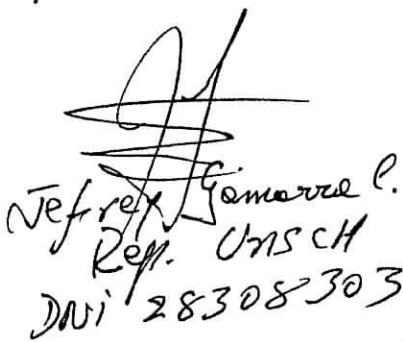 Jefrey Gamarra C.
Rep. UNSCH
DNi 28308303